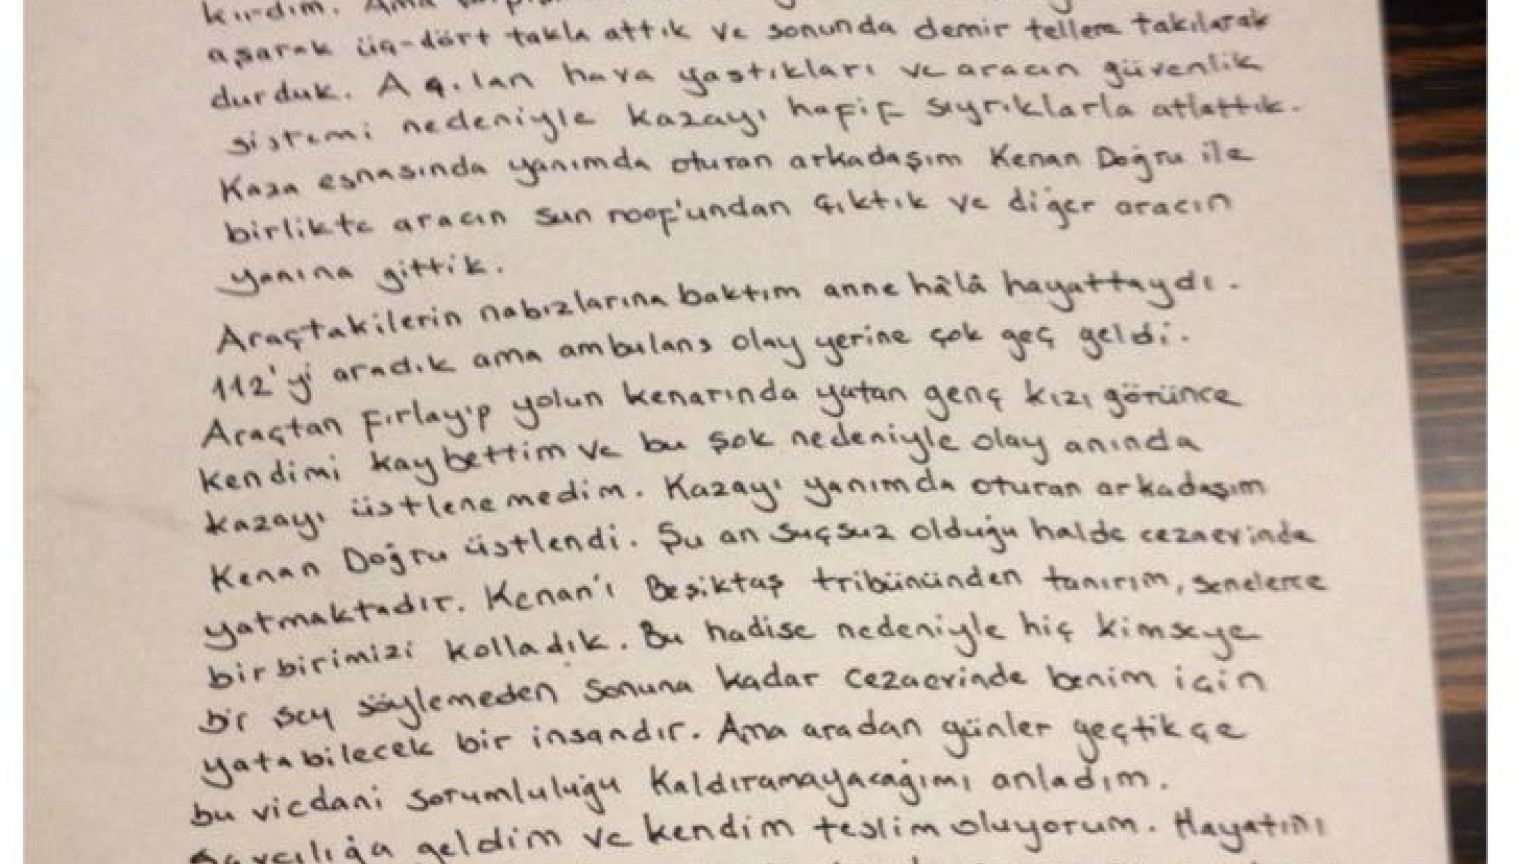 kırdım. Ama
aşarak üç-dört takla attık ve sonunda demir tellere takılarak
durduk. Açılan hava yastıkları ve aracın güvenlik
sistemi nedeniyle kazayı hafif sıyrıklarla atlattık.
Kaza esnasında yanımda oturan arkadaşım Kenan Doğru ile
birlikte aracın sun roof'undan çıktık ve diğer aracın
yanına gittik.
Araçtakilerin nabızlarına baktım anne hâlâ hayattaydı.
112'yi aradık ama ambulans olay yerine çok geç geldi.
Araçtan fırlayıp yolun kenarında yatan genç kızı görünce
kendimi kaybettim ve bu şok nedeniyle olay anında
kazayı üstlenemedim. Kazayı yanımda oturan arkadaşım
Kenan Doğru üstlendi. Şu an suçsuz olduğu halde cezaevinde
yatmaktadır. Kenan'ı Beşiktaş tribününden tanırım, senelerce
birbirimizi kolladık. Bu hadise nedeniyle hiç kimseye
bir şey söylemeden sonuna kadar cezaevinde benim için
yatabilecek bir insandır. Ama aradan günler geçtikçe
bu vicdani sorumluluğu kaldıramayacağımı anladım.
Savcılığa geldim ve kendim teslim oluyorum. Hayatını